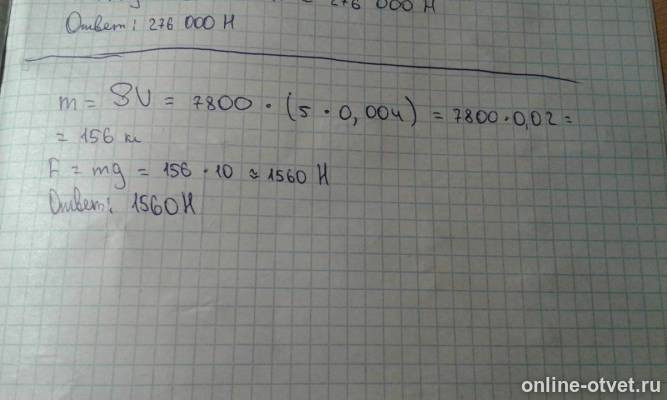 = 276 000 Н
Ответ: 276 000 Н
m = ρV = 7800 · (5 · 0,004) = 7800 · 0,02 =
= 156 кг
F = mg = 156 · 10 ≈ 1560 Н
Ответ: 1560 Н
online-otvet.ru